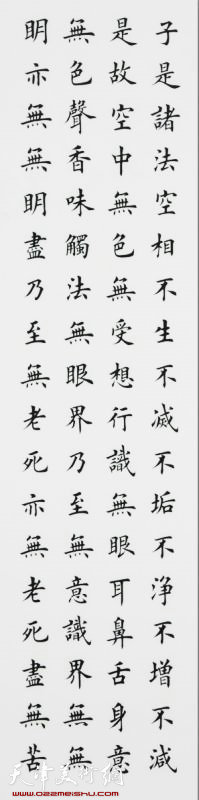 子是諸法空相不生不滅不垢不淨不增不減
是故空中無色無受想行識無眼耳鼻舌身意
無色聲香味觸法無眼界乃至無意識界無無
眀亦無無眀盡乃至無老死亦無老死盡無苦
天津美术网
www.022meishu.com